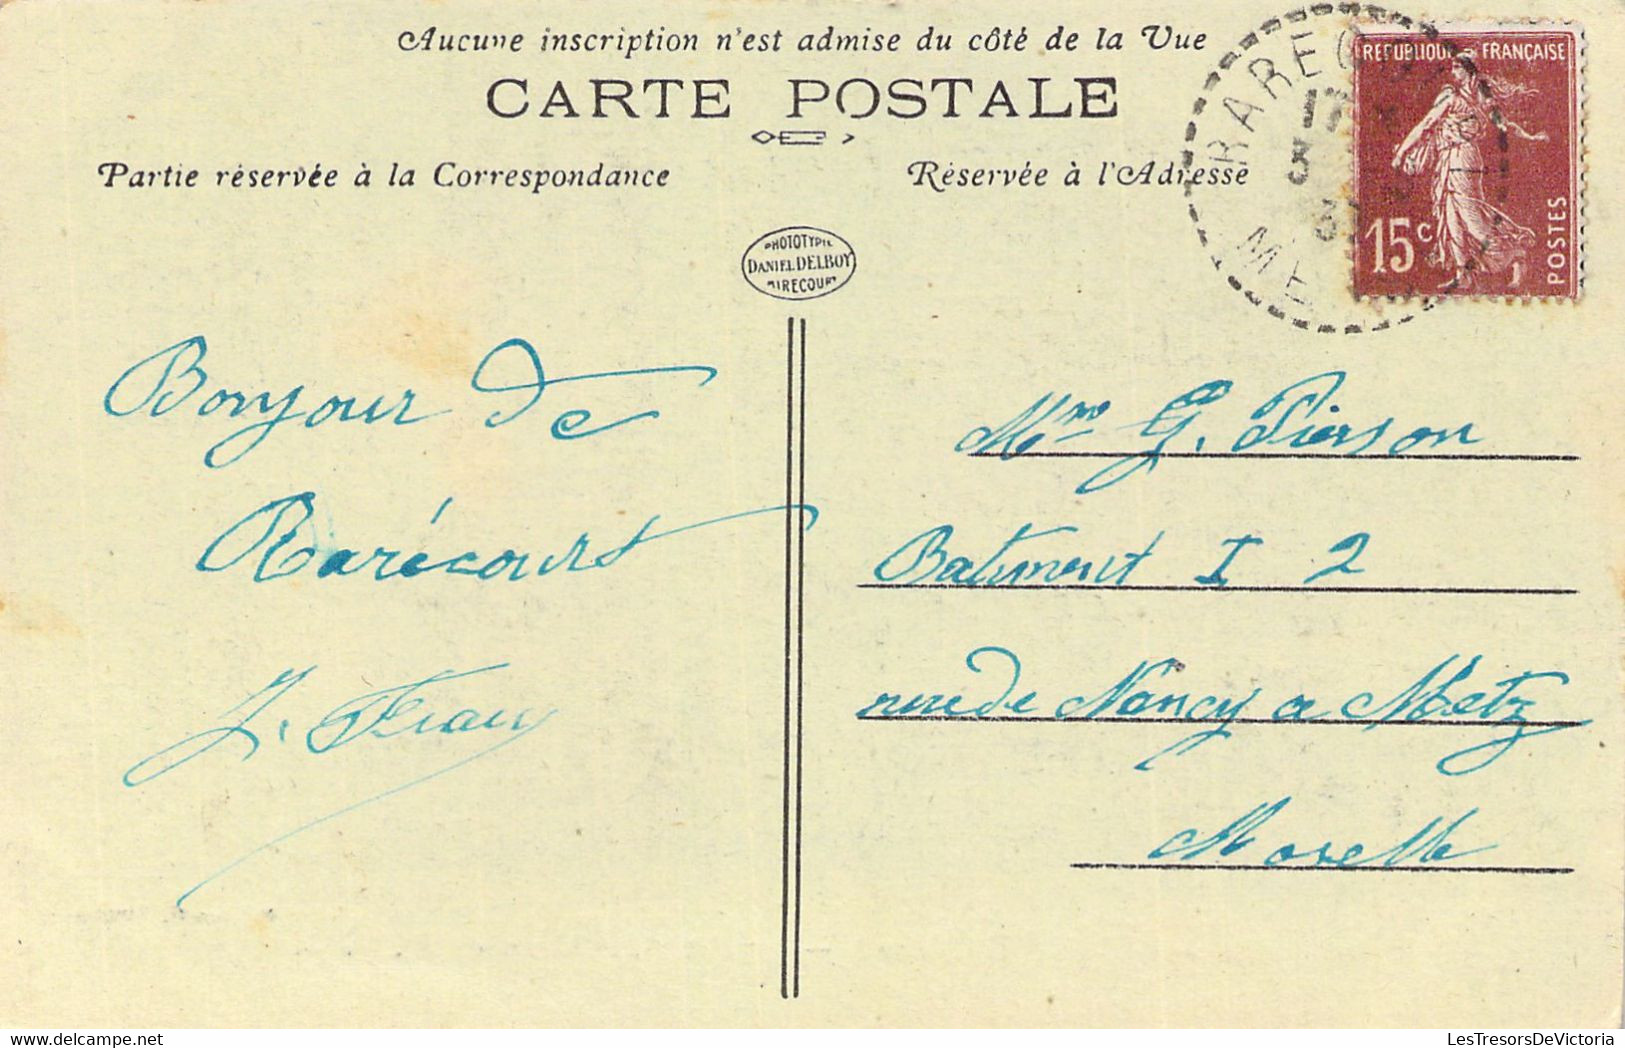 Aucune inscription n'est admise du côté de la Vue
CARTE POSTALE
Partie réservée à la Correspondance
Réservée à l'Adresse
RÉPUBLIQUE FRANÇAISE
15c
POSTES
RAREC
PHOTOTYPIE
DANIEL DELBOY
MIRECOURT
Bonjour de
Rarécourt
Mme G. Pierson
Batiment I 2
rue de Nancy a Metz
Moselle
LesTresorsDeVictoria